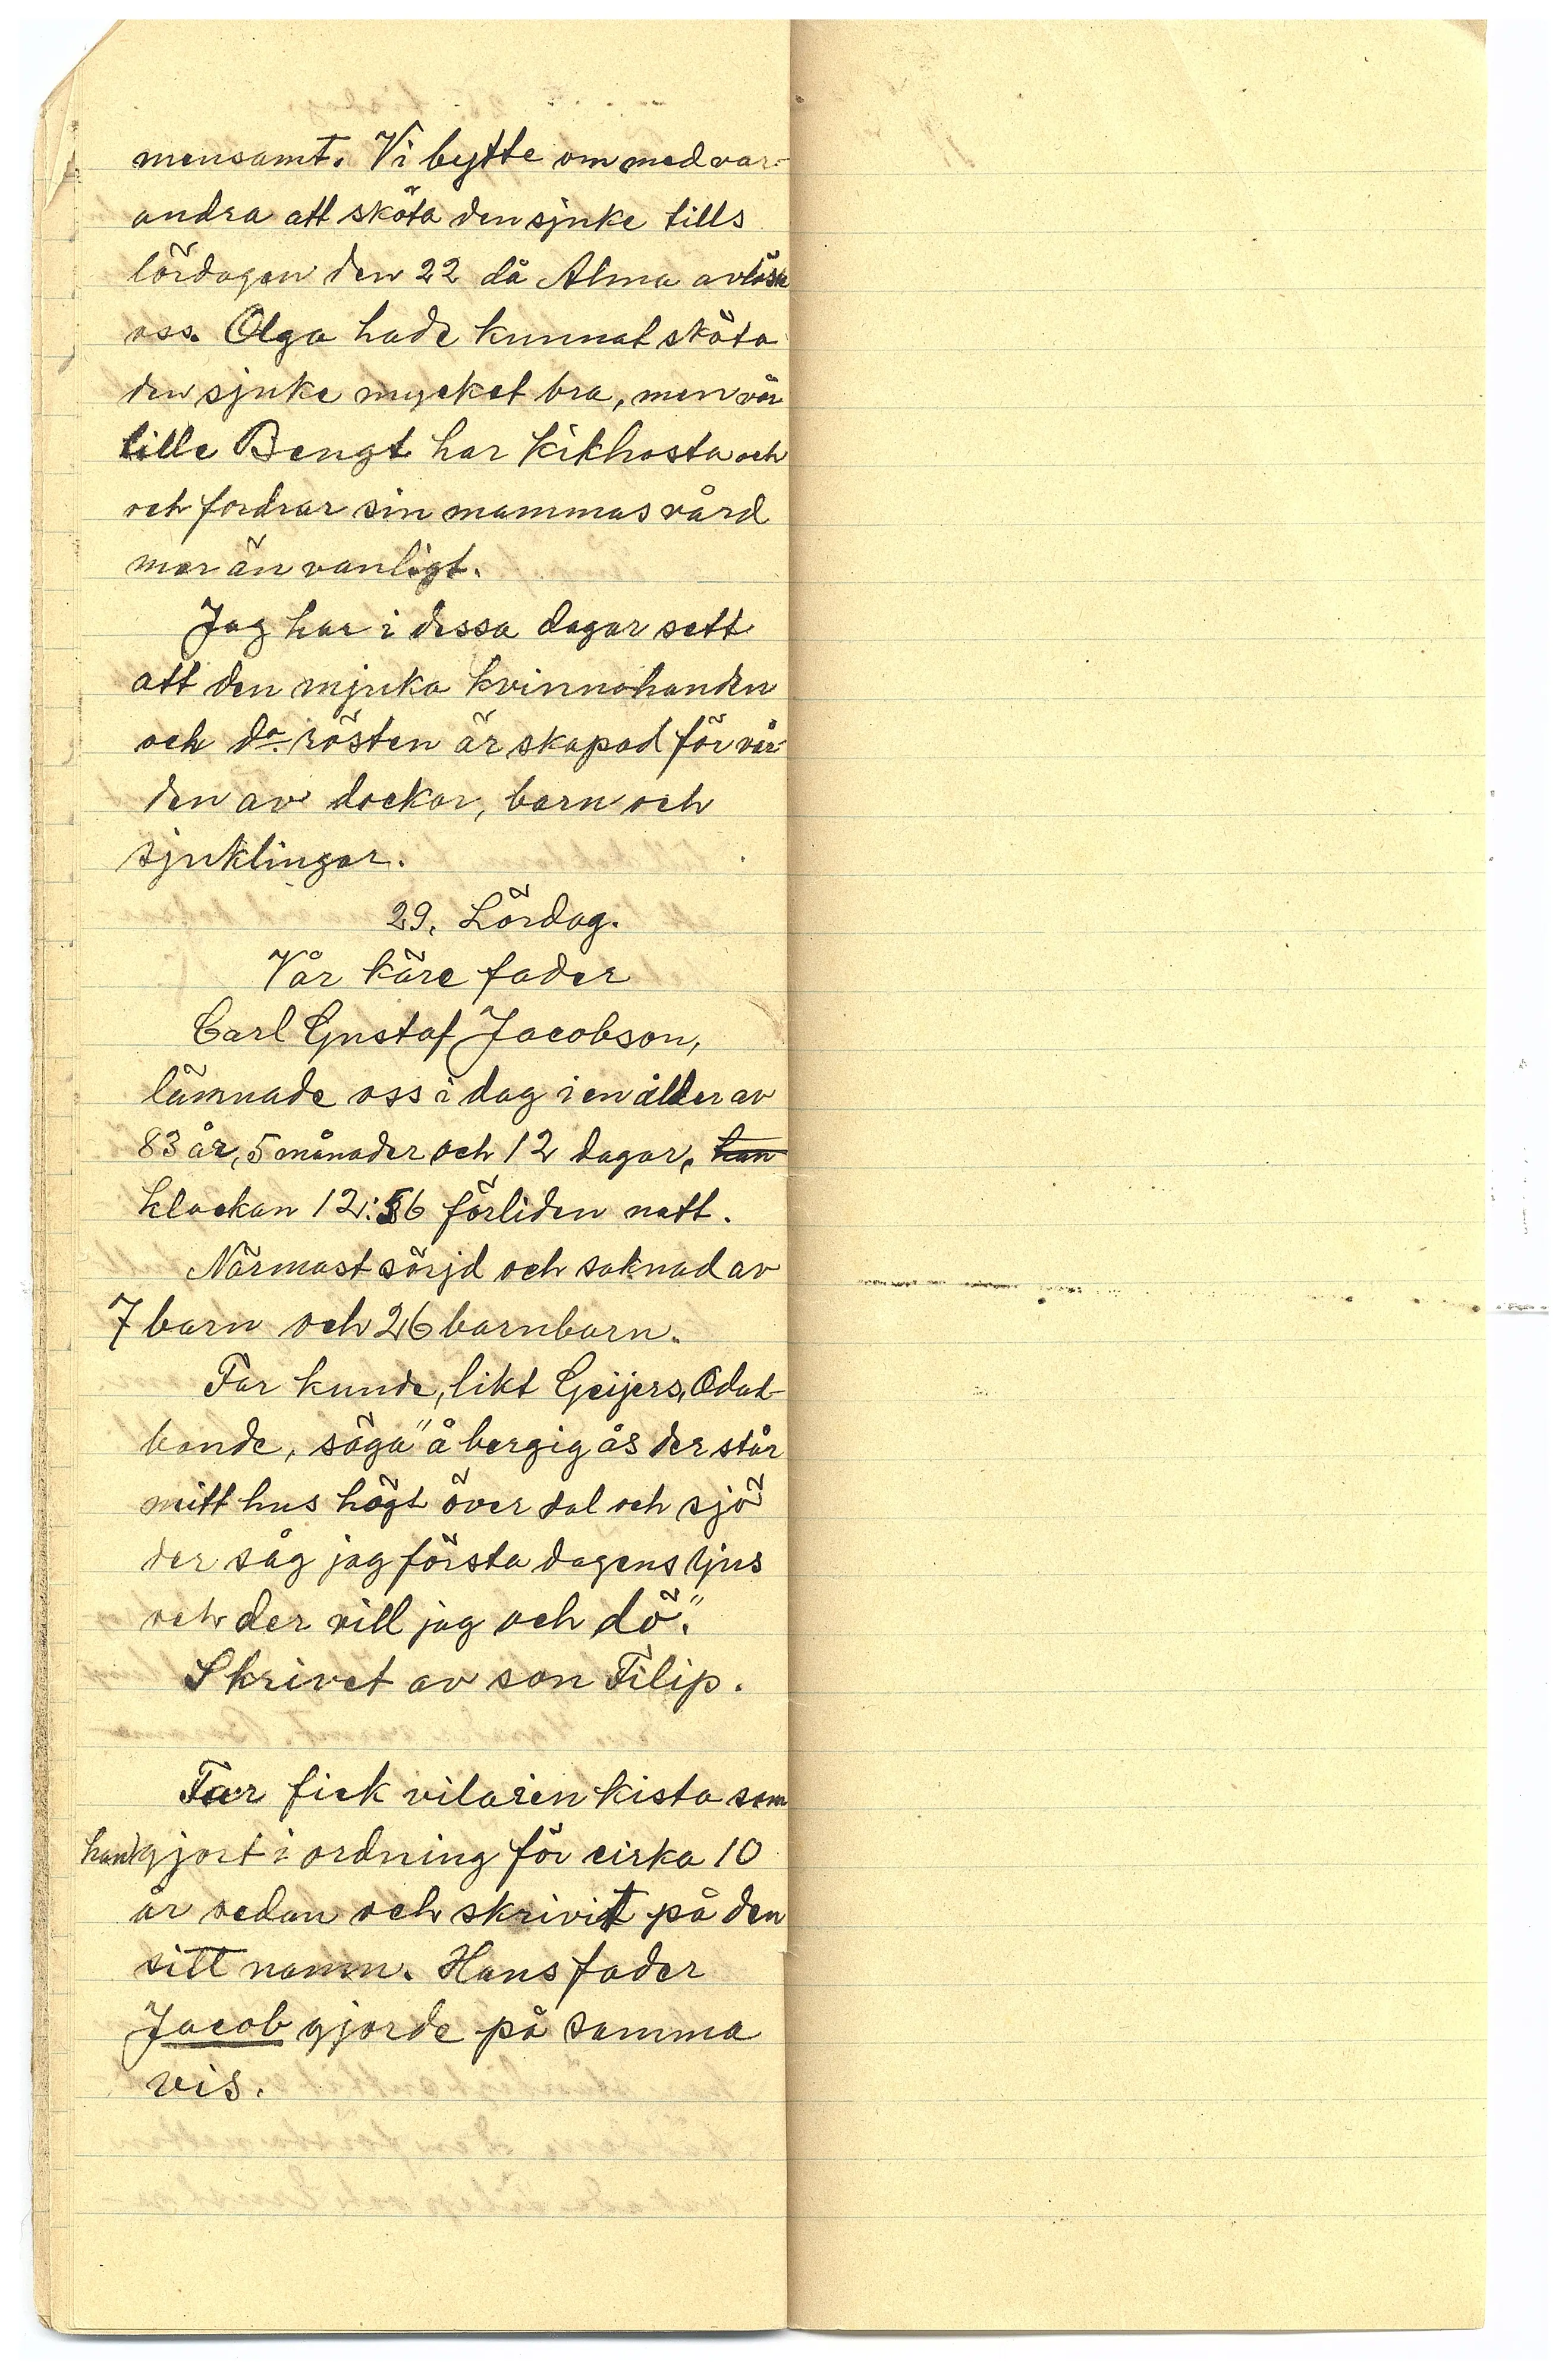 mensamt. Vi bytte om med var-
andra att sköta den sjuke tills
lördagen den 22 då Alma avlöste
oss. Olga hade kunnat sköta
den sjuke mycket bra, men vår
lille Bengt har kikhosta och
och fordrar sin mammas vård
mer än vanligt.
Jag har i dessa dagar sett
att den mjuka kvinnohanden
och do. rösten är skapad för vår-
den av dockor, barn och
sjuklingar.
29. Lördag.
Vår käre fader
Carl Gustaf Jacobson,
lämnade oss i dag i en ålder av
83 år, 5 månader och 12 dagar, han
klockan 12:56 förliden natt.
Närmast sörjd och saknad av
7 barn och 26 barnbarn.
Far kunde, likt Geijers, Odal-
bonde, säga "å bergig ås der står
mitt hus högt över dal och sjö
der såg jag första dagens ljus
och der vill jag och dö."
Skrivet av son Filip.
Far fick vila i en kista som
han gjort i ordning för cirka 10
år sedan och skrivit på den
sitt namn. Hans fader
Jacob gjorde på samma
vis.